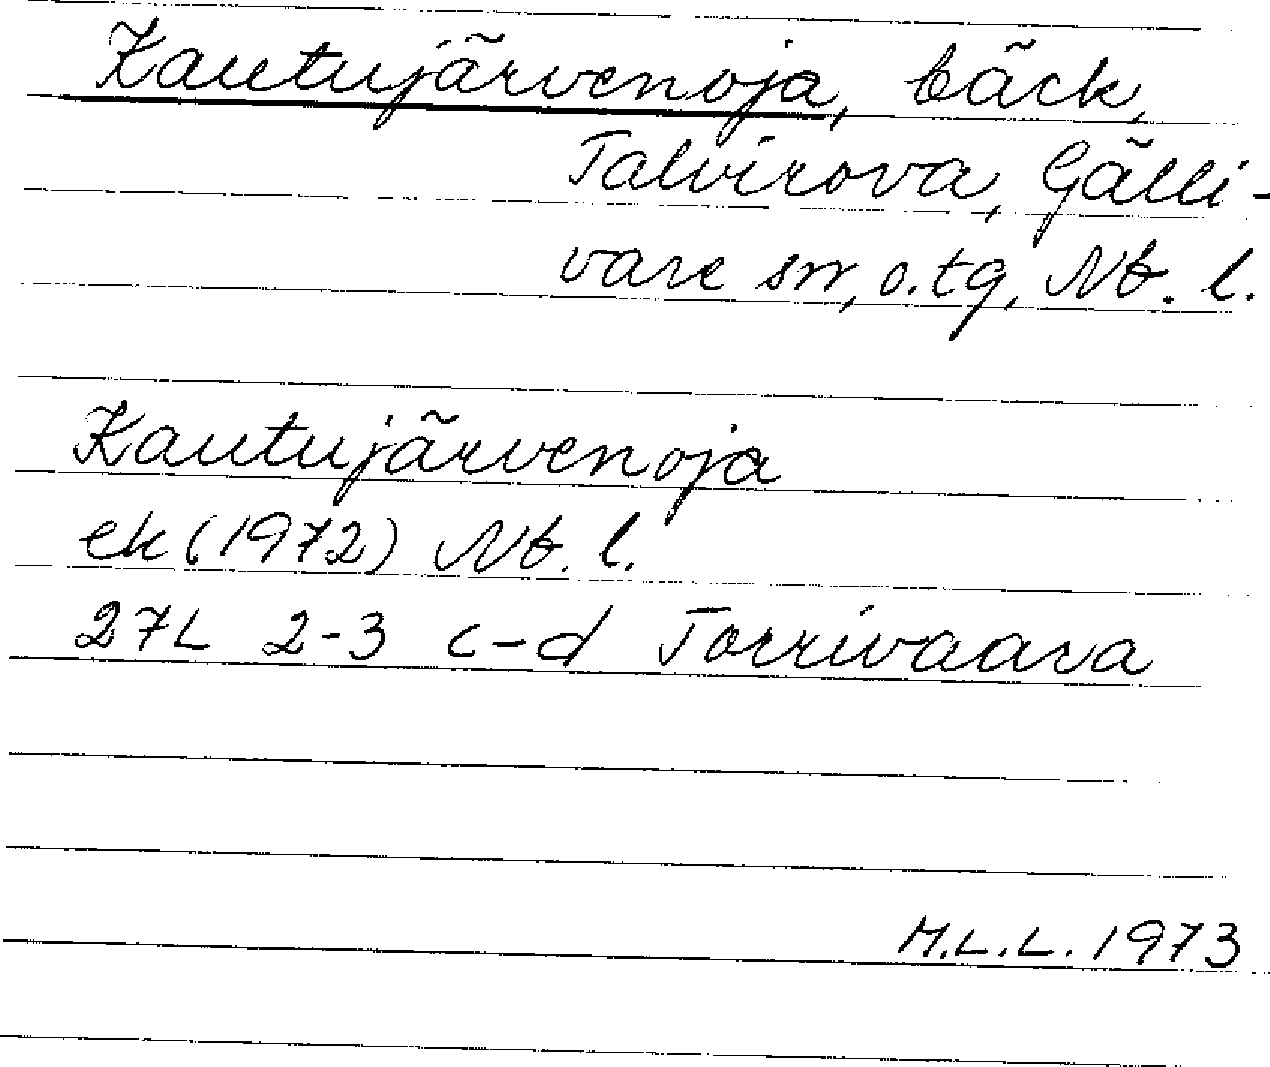 Kautujärvenoja, bäck,
Talvirova, Gälli-
vare sn, o. tg, Nb. l.
Kautujärvenoja
ek (1972) Nb. l.
27L 2-3 c-d Torrivaara
M.L.L. 1973